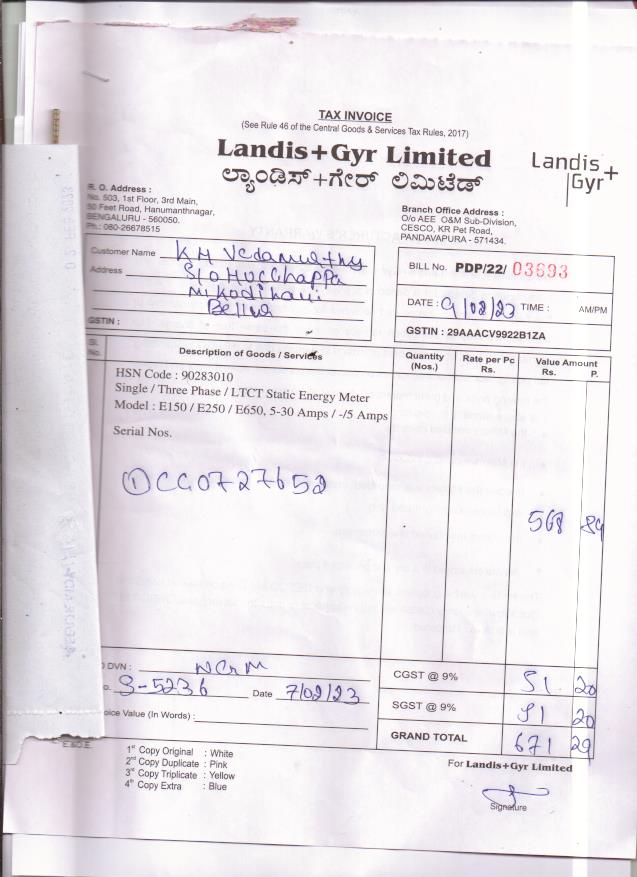 TAX INVOICE
(See Rule 46 of the Central Goods & Services Tax Rules, 2017)
Landis+Gyr Limited
ಲ್ಯಾಂಡಿಸ್+ಗೇರ್ ಲಿಮಿಟೆಡ್
Landis+
Gyr
R. O. Address :
No. 503, 1st Floor, 3rd Main,
80 Feet Road, Hanumanthnagar,
BENGALURU - 560050.
Ph.: 080-26678515
Branch Office Address :
O/o AEE O&M Sub-Division,
CESCO, KR Pet Road,
PANDAVAPURA - 571434.
Customer Name K M Vedamurthy
Address S/o
GSTIN :
BILL No. PDP/22/ 03693
DATE : 9/02/23 TIME : AM/PM
GSTIN : 29AAACV9922B1ZA
Sl. No. Description of Goods / Services Quantity (Nos.) Rate per Pc Rs. Value Amount Rs. P.
HSN Code : 90283010
Single / Three Phase / LTCT Static Energy Meter
Model : E150 / E250 / E650, 5-30 Amps / -/5 Amps
Serial Nos.
① CG0727652
568 89
DVN :
S-5236 Date 7/02/23
oice Value (In Words) :
CGST @ 9% 51 20
SGST @ 9% 51 20
GRAND TOTAL 671 29
E.&O.E.
1st Copy Original : White
2nd Copy Duplicate : Pink
3rd Copy Triplicate : Yellow
4th Copy Extra : Blue
For Landis+Gyr Limited
Signature